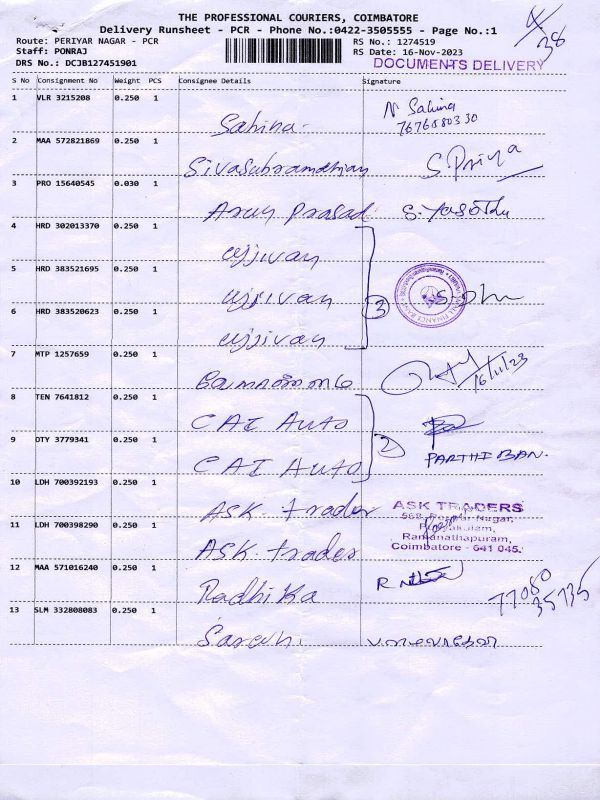 THE PROFESSIONAL COURIERS, COIMBATORE
Delivery Runsheet - PCR - Phone No.:0422-3505555 - Page No.:1
Route: PERIYAR NAGAR - PCR RS No.: 1274519
Staff: PONRAJ RS Date: 16-Nov-2023
DRS No.: DCJB127451901 DOCUMENTS DELIVERY
S No Consignment No Weight PCS Consignee Details Signature
1 VLR 3215208 0.250 1 Sahina N Sahina
7676880330
2 MAA 572821869 0.250 1 Sivasubramanian S. Priya
3 PRO 15640545 0.030 1 Arun Prasad
4 HRD 302013370 0.250 1 ujjivan
5 HRD 383521695 0.250 1 ujjivan 3
6 HRD 383520623 0.250 1 ujjivan
7 MTP 1257659 0.250 1 16/11/23
8 TEN 7641812 0.250 1 CAI Auto 2
9 OTY 3779341 0.250 1 CAI Auto PARTHIBAN.
10 LDH 700392193 0.250 1 ASK. trader ASK TRADERS
11 LDH 700398290 0.250 1 ASK. trader Ramanathapuram,
Coimbatore - 641 045.
12 MAA 571016240 0.250 1 Radhika
77080
35735
13 SLM 332808083 0.250 1 Saran